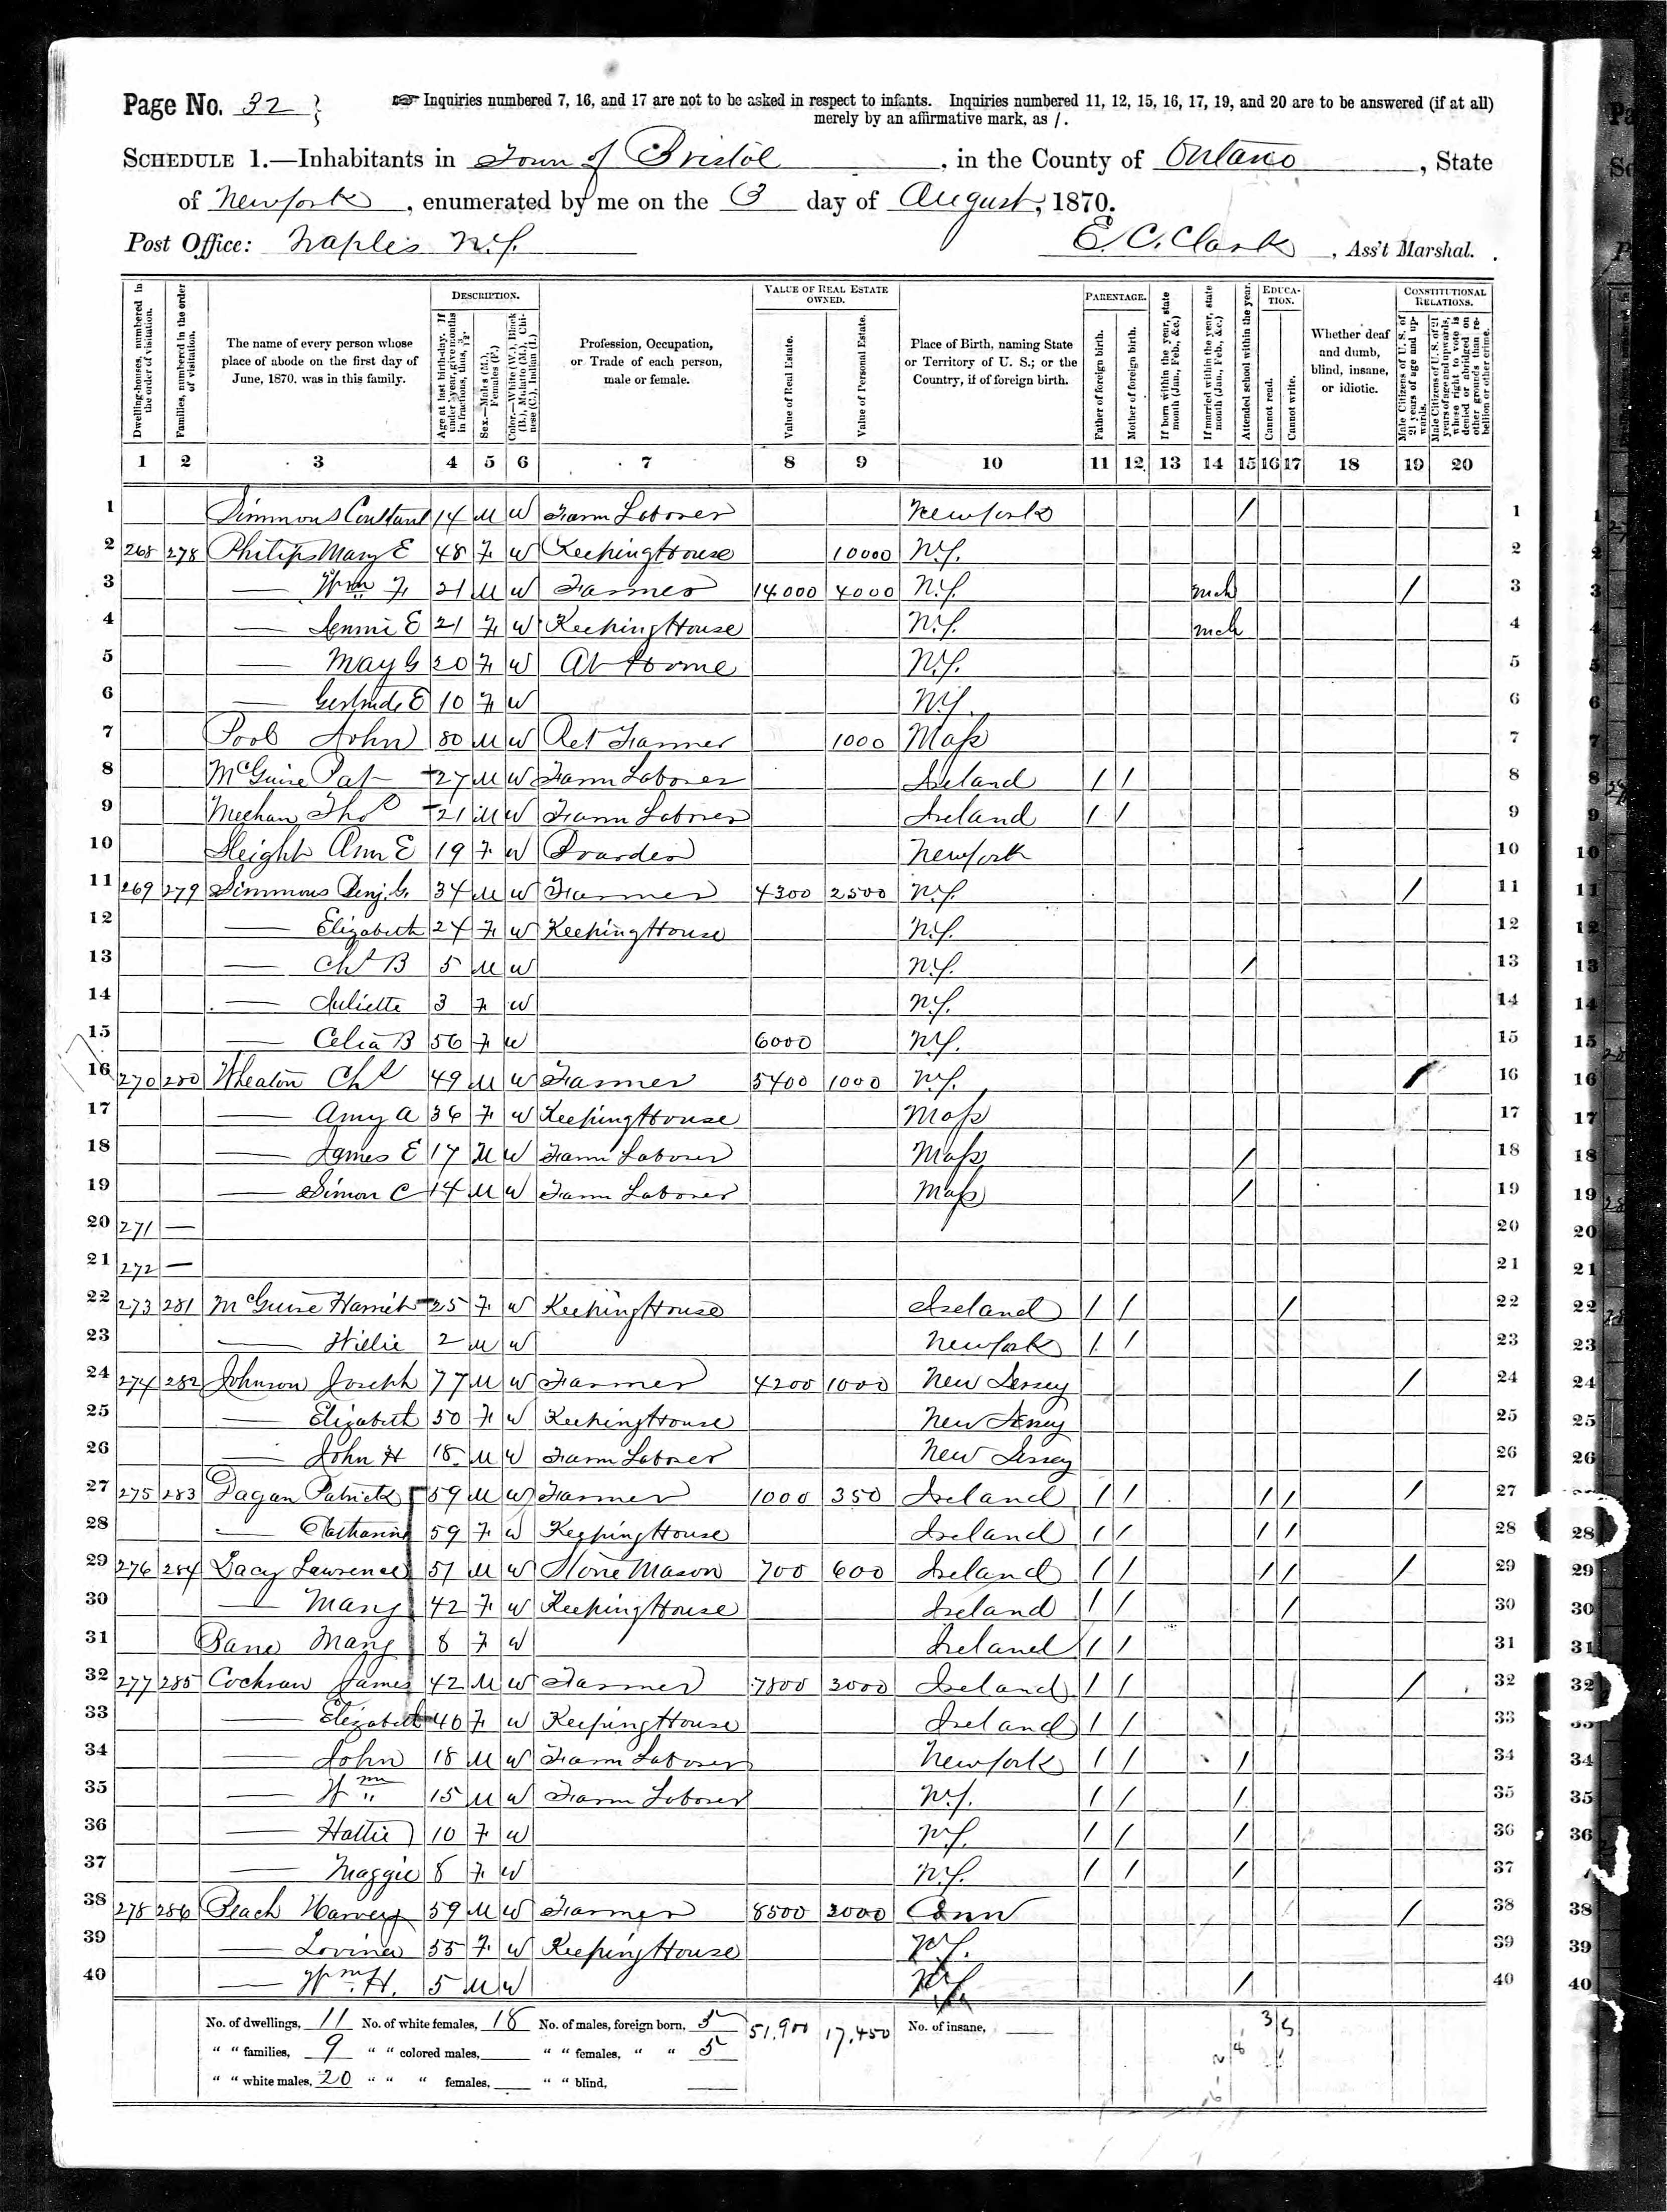 Page No. 32
☞ Inquiries numbered 7, 16, and 17 are not to be asked in respect to infants. Inquiries numbered 11, 12, 15, 16, 17, 19, and 20 are to be answered (if at all)
merely by an affirmative mark, as /.
SCHEDULE 1.—Inhabitants in Town of Bristol, in the County of Ontario, State
of New York, enumerated by me on the 3 day of August, 1870.
Post Office: Naples N.Y. E. C. Clark, Ass't Marshal.
Dwelling-houses, numbered in the order of visitation.
Families, numbered in the order of visitation.
The name of every person whose place of abode on the first day of June, 1870, was in this family.
DESCRIPTION.
Age at last birth-day. If under 1 year, give months in fractions, thus, 3/12.
Sex.—Males (M.), Females (F.)
Color.—White (W.), Black (B.), Mulatto (M.), Chinese (C.), Indian (I.)
Profession, Occupation, or Trade of each person, male or female.
VALUE OF REAL ESTATE OWNED.
Value of Real Estate.
Value of Personal Estate.
Place of Birth, naming State or Territory of U. S.; or the Country, if of foreign birth.
PARENTAGE.
Father of foreign birth.
Mother of foreign birth.
If born within the year, state month (Jan., Feb., &c.)
If married within the year, state month (Jan., Feb., &c.)
Attended school within the year.
EDUCATION.
Cannot read.
Cannot write.
Whether deaf and dumb, blind, insane, or idiotic.
CONSTITUTIONAL RELATIONS.
Male Citizens of U. S. of 21 years of age and upwards.
Male Citizens of U. S. of 21 years of age and upwards, whose right to vote is denied or abridged on other grounds than rebellion or other crime.
1 2 3 4 5 6 7 8 9 10 11 12 13 14 15 16 17 18 19 20
1 Simmons Constant 14 M W Farm Laborer New York / 1
2 268 278 Philips Mary E 48 F W Keeping House 10000 N.Y. 2
3 — Wm F 21 M W Farmer 14000 4000 N.Y. mch / 3
4 — Jennie E 21 F W Keeping House N.Y. mch 4
5 — May G 20 F W At Home N.Y. 5
6 — Gertrude E 10 F W N.Y. 6
7 Pool John 80 M W Ret Farmer 1000 Mass 7
8 McGuire Pat 27 M W Farm Laborer Ireland / / 8
9 Meehan Thos 21 M W Farm Laborer Ireland / / 9
10 Sleight Ann E 19 F W Boarder New York 10
11 269 279 Simmons Benj. G. 34 M W Farmer 4300 2500 N.Y. / 11
12 — Elizabeth 24 F W Keeping House N.Y. 12
13 — Chs B 5 M W N.Y. / 13
14 — Juliette 3 F W N.Y. 14
15 — Celia B 56 F W 6000 N.Y. 15
16 270 280 Wheaton Chs 49 M W Farmer 5400 1000 N.Y. / 16
17 — Amy A 36 F W Keeping House Mass 17
18 — James E 17 M W Farm Laborer Mass / 18
19 — Simon C 14 M W Farm Laborer Mass / 19
20 271 — 20
21 272 — 21
22 273 281 McGuire Harriet 25 F W Keeping House Ireland / / / 22
23 — Willie 2 M W New York / / 23
24 274 282 Johnson Joseph 77 M W Farmer 4200 1000 New Jersey / 24
25 — Elizabeth 50 F W Keeping House New Jersey 25
26 — John H 18 M W Farm Laborer New Jersey 26
27 275 283 Dagan Patrick 59 M W Farmer 1000 350 Ireland / / / / / 27
28 — Catharine 59 F W Keeping House Ireland / / / / 28
29 276 284 Lacy Lawrence 51 M W Stone Mason 700 600 Ireland / / / / / 29
30 — Mary 42 F W Keeping House Ireland / / / 30
31 Mary 8 F W Ireland / / 31
32 277 285 Cochran James 42 M W Farmer 7800 3000 Ireland / / / 32
33 — Elizabeth 40 F W Keeping House Ireland / / 33
34 — John 18 M W Farm Laborer New York / / / 34
35 — Wm 15 M W Farm Laborer N.Y. / / / 35
36 — Hattie 10 F W N.Y. / / / 36
37 — Maggie 8 F W N.Y. / / / 37
38 278 286 Peach Harvey 59 M W Farmer 8500 2000 Conn / 38
39 — Lovina 55 F W Keeping House N.Y. 39
40 — Wm. H. 5 M W N.Y. / 40
No. of dwellings, 11 No. of white females, 18 No. of males, foreign born, 5 51,900 17,450 No. of insane, 3 5
" " families, 9 " " colored males, " " females, " " 5
" " white males, 20 " " " females, " " blind,